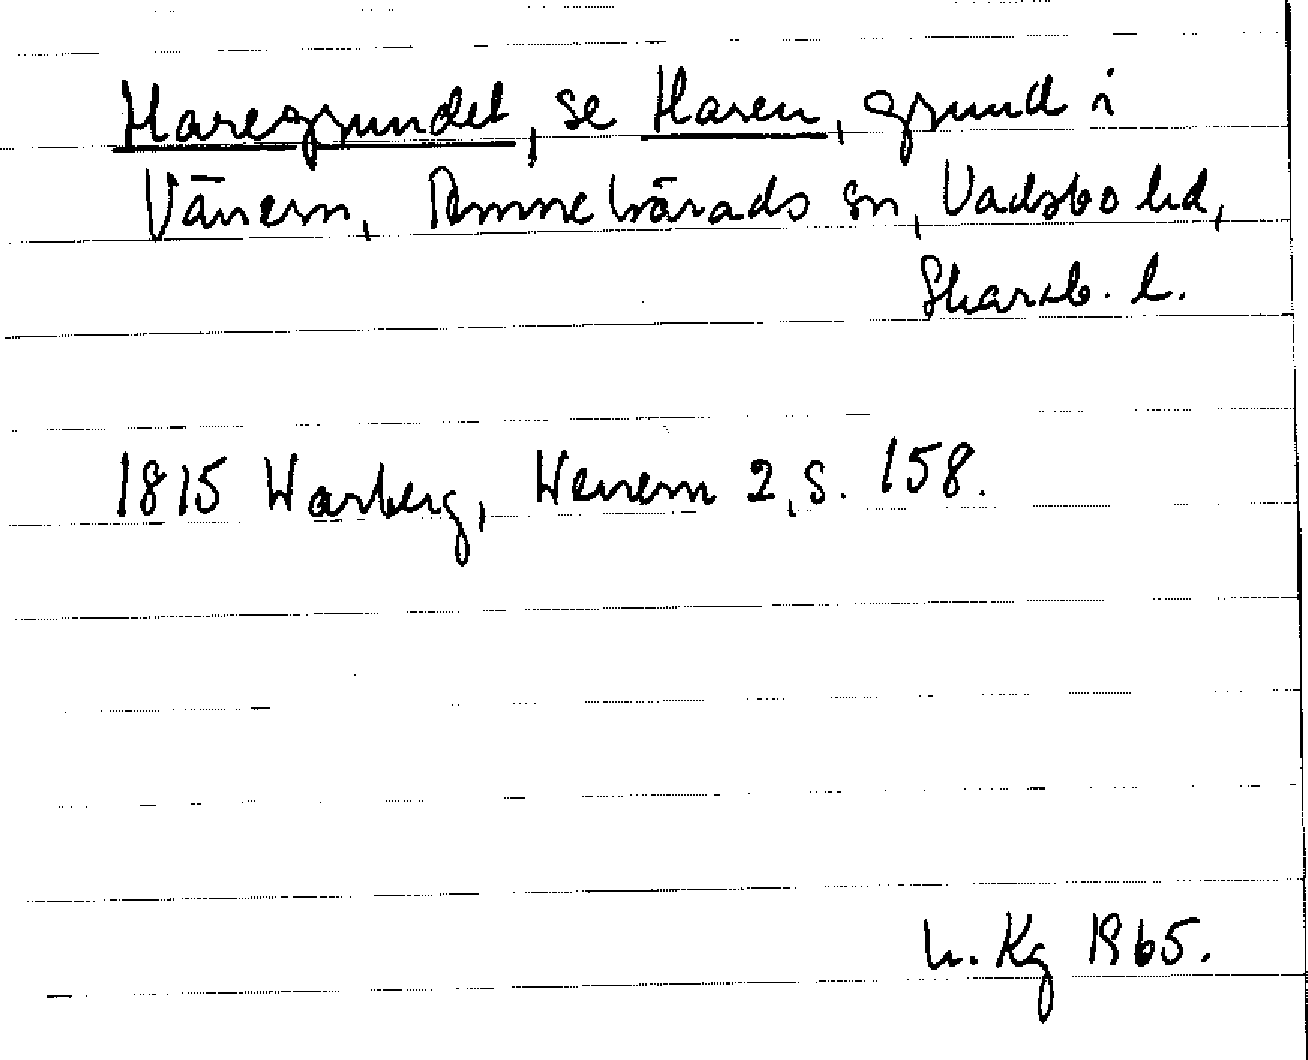 Haregrundet, se Haren, grund i
Vänern, Amnehärads sn, Vadsbo hd,
Skarab. l.
1815 Warberg, Wenern 2, s. 158.
h. Kg 1965.